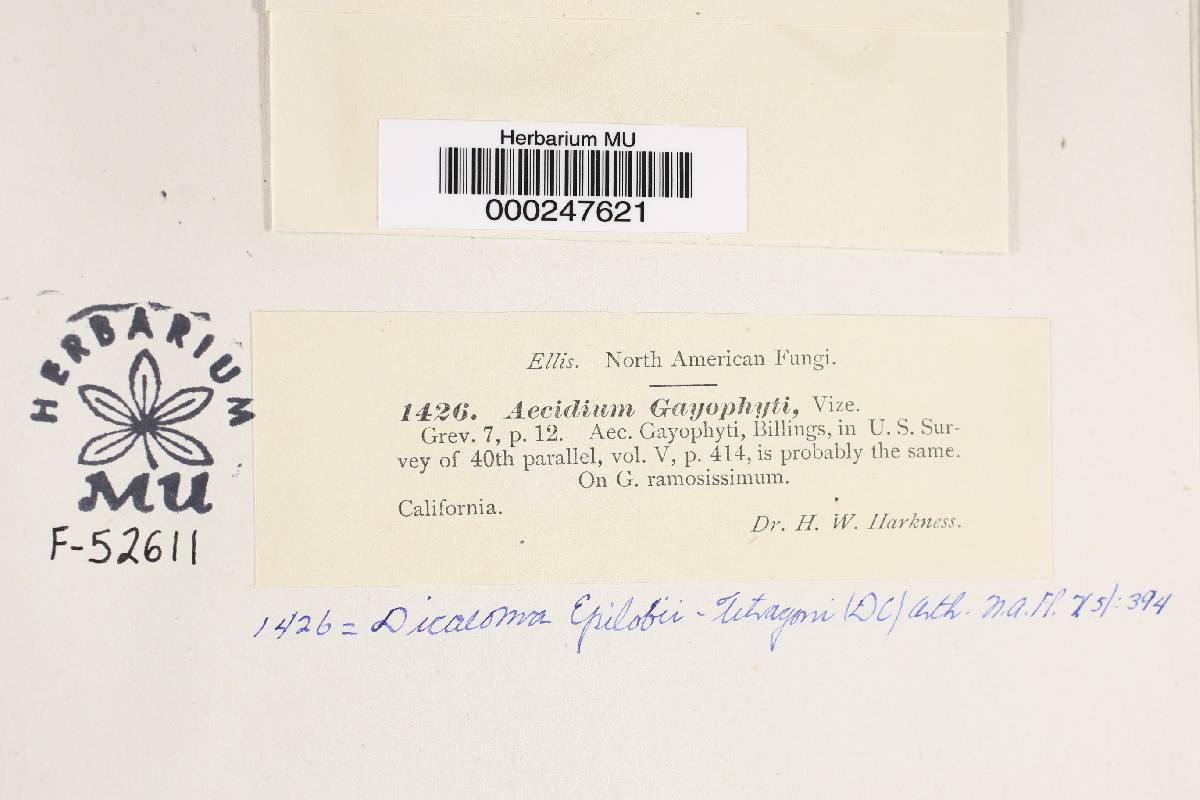 Herbarium MU
000247621
HERBARIUM
MU
F-52611
Ellis. North American Fungi.
1426. Aecidium Gayophyti, Vize.
Grev. 7, p. 12. Aec. Gayophyti, Billings, in U. S. Sur-
vey of 40th parallel, vol. V, p. 414, is probably the same.
On G. ramosissimum.
California.
Dr. H. W. Harkness.
1426 = Dicaeoma Epilobii-Tetragoni (DC) Arth. N.A.Fl. 7(5):394